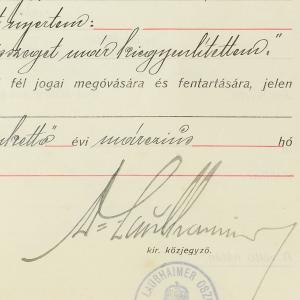 kijelentem:
összeget már kiegyenlítettem."
fél jogai megóvására és fentartására, jelen
kettő évi március hó
Dr Laubhaimer
kir. közjegyző.
LAUBHAIMER OSZ